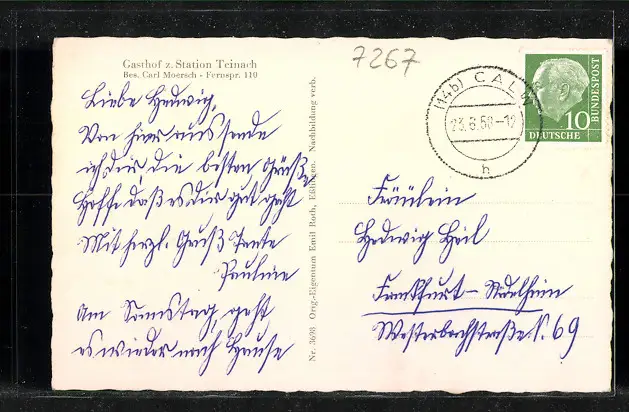 Gasthof z. Station Teinach
Bes. Carl Moersch - Fernspr. 110
7267
Liebe Hedwig,
Von hier aus sende
ich dir die besten Grüße
Hoffe daß es dir gut geht
Mit herzl. Gruß Tante
Pauline
Am Samstag geht
es wieder nach Hause
Nr. 3698 Orig.-Eigentum Emil Roth, Eßlingen. Nachbildung verb.
(14b) CALW
23.8.56-12
h
10
DEUTSCHE BUNDESPOST
Fräulein
Hedwig Heil
Frankfurt - Rödelheim
Westerbachstraße N. 69